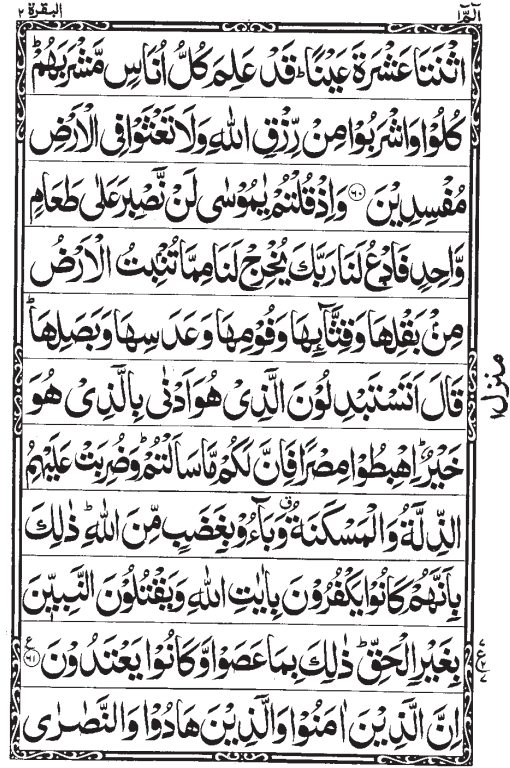 الٓمّٓ
البقرة ٢
اثْنَتَا عَشْرَةَ عَيْنًا ؕ قَدْ عَلِمَ كُلُّ اُنَاسٍ مَّشْرَبَهُمْ ؕ
كُلُوْا وَاشْرَبُوْا مِنْ رِّزْقِ اللّٰهِ وَلَا تَعْثَوْا فِى الْاَرْضِ
مُفْسِدِيْنَ ۝۶۰ وَاِذْ قُلْتُمْ يٰمُوْسٰى لَنْ نَّصْبِرَ عَلٰى طَعَامٍ
وَّاحِدٍ فَادْعُ لَنَا رَبَّكَ يُخْرِجْ لَنَا مِمَّا تُنْۢبِتُ الْاَرْضُ
مِنْۢ بَقْلِهَا وَقِثَّآئِهَا وَفُوْمِهَا وَعَدَسِهَا وَبَصَلِهَا ؕ
قَالَ اَتَسْتَبْدِلُوْنَ الَّذِىْ هُوَ اَدْنٰى بِالَّذِىْ هُوَ
خَيْرٌ ؕ اِهْبِطُوْا مِصْرًا فَاِنَّ لَكُمْ مَّا سَاَلْتُمْ ؕ وَضُرِبَتْ عَلَيْهِمُ
الذِّلَّةُ وَالْمَسْكَنَةُ ۗ وَبَآءُوْ بِغَضَبٍ مِّنَ اللّٰهِ ؕ ذٰلِكَ
بِاَنَّهُمْ كَانُوْا يَكْفُرُوْنَ بِاٰيٰتِ اللّٰهِ وَيَقْتُلُوْنَ النَّبِيّٖنَ
بِغَيْرِ الْحَقِّ ؕ ذٰلِكَ بِمَا عَصَوْا وَّكَانُوْا يَعْتَدُوْنَ ۝۶۱ ع
اِنَّ الَّذِيْنَ اٰمَنُوْا وَالَّذِيْنَ هَادُوْا وَالنَّصٰرٰى
منزل ۱